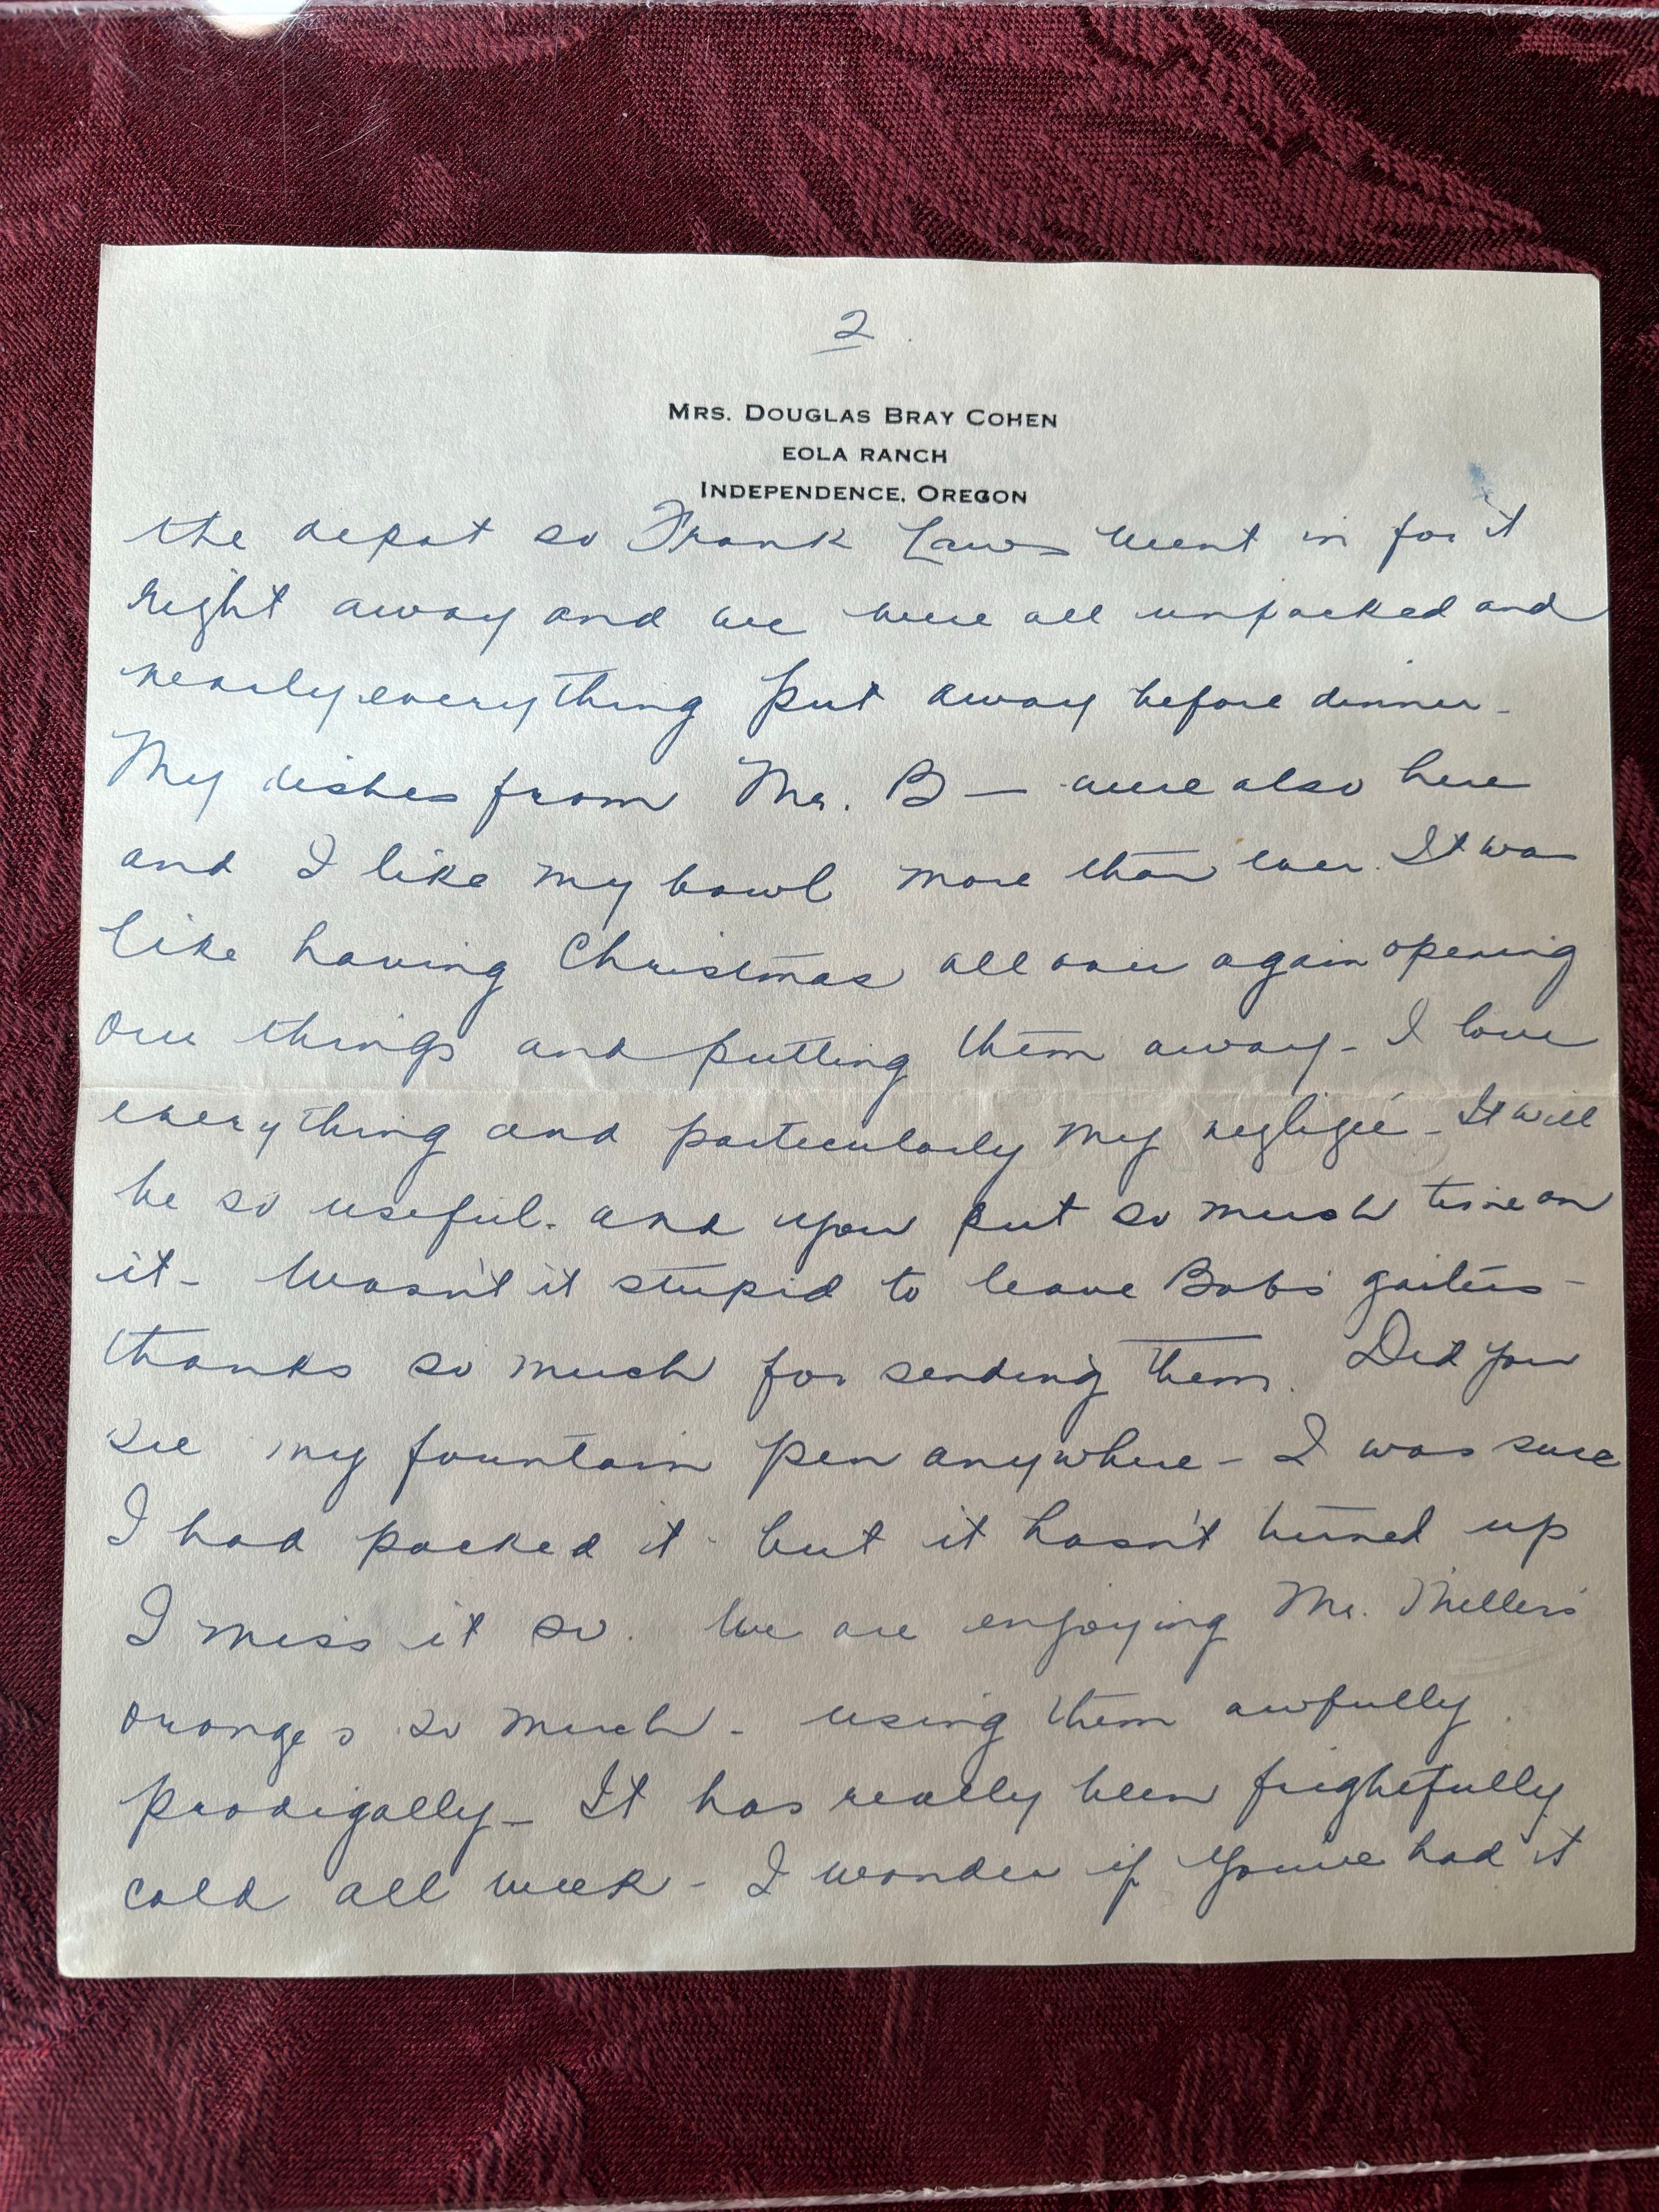 2
MRS. DOUGLAS BRAY COHEN
EOLA RANCH
INDEPENDENCE, OREGON
the depot so Frank Laws went in for it
right away and we were all unpacked and
nearly everything put away before dinner -
My dishes from Mr. B — were also here
and I like my bowl more than ever. It was
like having Christmas all over again opening
our things and putting them away - I love
everything and particularly my negligeé - It will
be so useful - and you put so much time on
it - Wasn't it stupid to leave Bob's gaiters -
thanks so much for sending them. Did you
see my fountain pen anywhere - I was sure
I had packed it - but it hasn't turned up
I miss it so. We are enjoying Mr. Miller's
oranges so much - using them awfully
prodigally - It has really been frightfully
cold all week - I wonder if you've had it